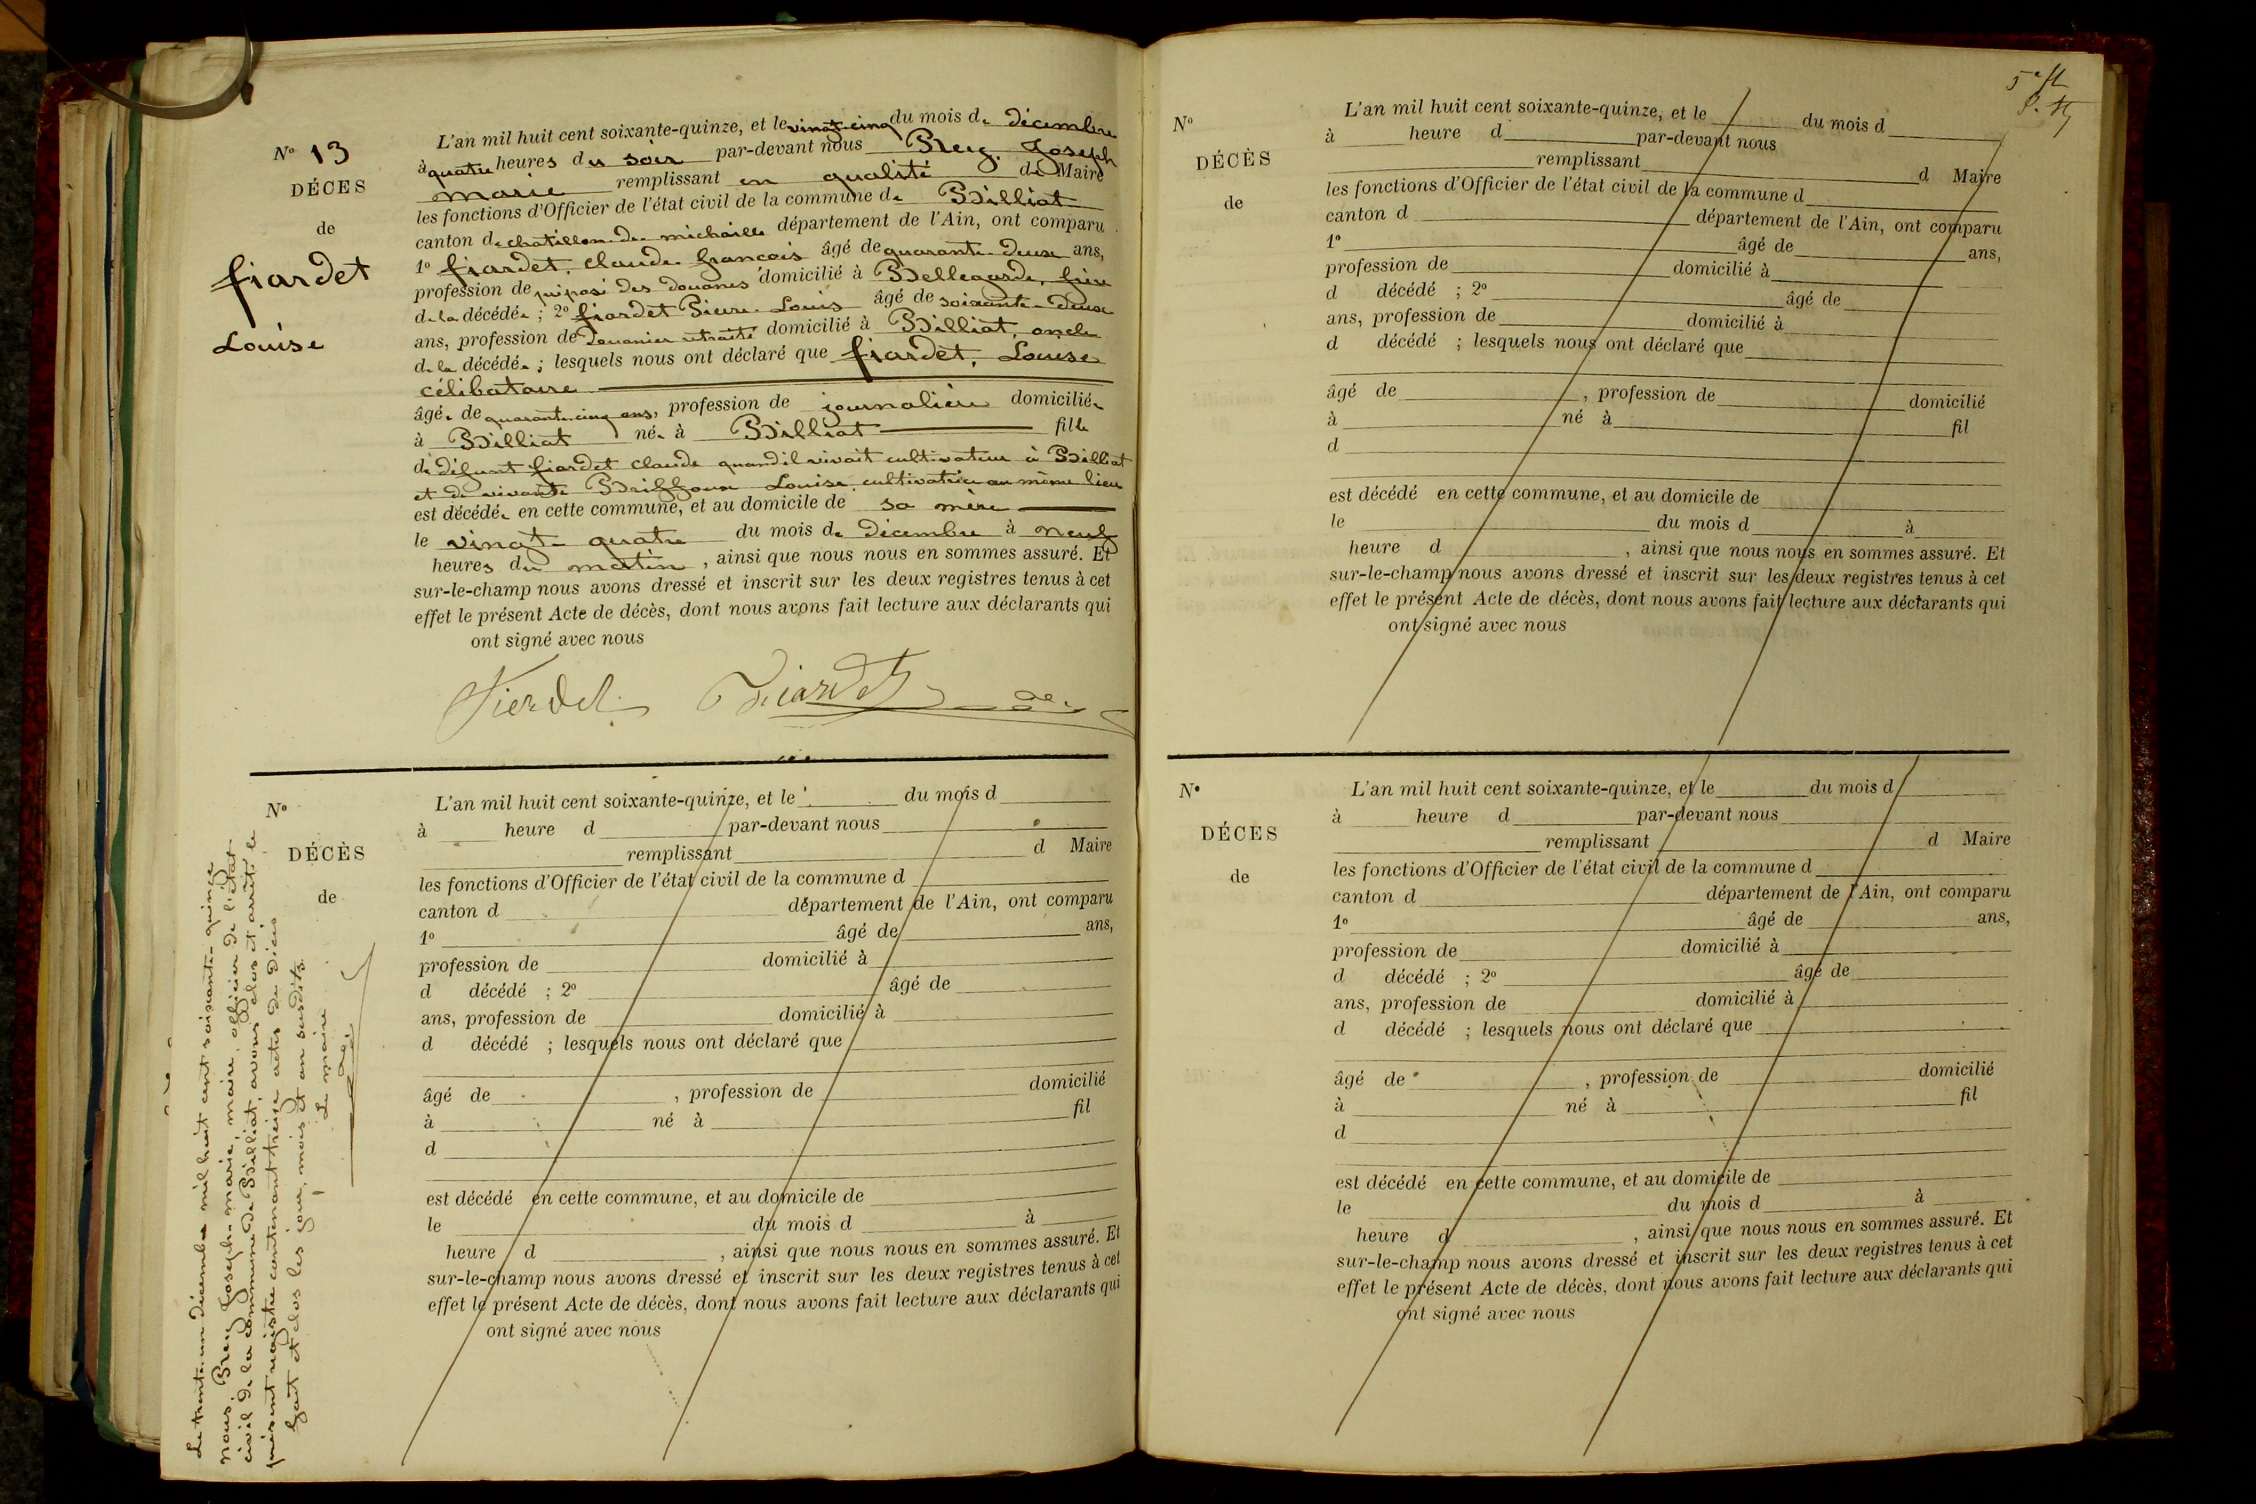 N° 13
DÉCES
de
fiardet
Louise
L'an mil huit cent soixante-quinze, et le vingt-cinq du mois de décembre
à quatre heures du soir par-devant nous Breig. Joseph
marie remplissant en qualité de Maire
les fonctions d'Officier de l'état civil de la commune de Billiat
canton de chatillon de michaille département de l'Ain, ont comparu
1° fiardet, claude francois âgé de quarante-deux ans,
profession de préposé des douanes domicilié à Bellegarde, frère
de la décédée ; 2° fiardet Pierre Louis âgé de soixante-deux
ans, profession de douanier retraité domicilié à Billiat, oncle
de la décédée ; lesquels nous ont déclaré que fiardet, Louise
célibataire
âgée de quarante-cinq ans, profession de journalière domiciliée
à Billiat née à Billiat fille
de défunt fiardet claude quand il vivait cultivateur à Billiat
et de vivante Louise, cultivatrice au même lieu
est décédée en cette commune, et au domicile de sa mère
le vingt-quatre du mois de décembre à neuf
heures du matin, ainsi que nous nous en sommes assuré. Et
sur-le-champ nous avons dressé et inscrit sur les deux registres tenus à cet
effet le présent Acte de décès, dont nous avons fait lecture aux déclarants qui
ont signé avec nous
Fierdet Fiardet
N°
DÉCÈS
de
L'an mil huit cent soixante-quinze, et le du mois d
à heure d par-devant nous
remplissant d Maire
les fonctions d'Officier de l'état civil de la commune d
canton d département de l'Ain, ont comparu
1° âgé de ans,
profession de domicilié à
d décédé ; 2° âgé de
ans, profession de domicilié à
d décédé ; lesquels nous ont déclaré que
âgé de , profession de domicilié
à né à fil
d
est décédé en cette commune, et au domicile de
le du mois d à
heure d , ainsi que nous nous en sommes assuré. Et
sur-le-champ nous avons dressé et inscrit sur les deux registres tenus à cet
effet le présent Acte de décès, dont nous avons fait lecture aux déclarants qui
ont signé avec nous
Le trente-un décembre mil huit cent soixante-quinze
nous, Breig Joseph-marie, maire, officier de l'état
civil de la commune de Billiat, avons clos et arrêté le
présent registre contenant treize actes de décès
fait et clos les jour, mois et an susdits.
Le maire
5e ft
N°
DÉCÈS
de
L'an mil huit cent soixante-quinze, et le du mois d
à heure d par-devant nous
remplissant d Maire
les fonctions d'Officier de l'état civil de la commune d
canton d département de l'Ain, ont comparu
1° âgé de ans,
profession de domicilié à
d décédé ; 2° âgé de
ans, profession de domicilié à
d décédé ; lesquels nous ont déclaré que
âgé de , profession de domicilié
à né à fil
d
est décédé en cette commune, et au domicile de
le du mois d à
heure d , ainsi que nous nous en sommes assuré. Et
sur-le-champ nous avons dressé et inscrit sur les deux registres tenus à cet
effet le présent Acte de décès, dont nous avons fait lecture aux déclarants qui
ont signé avec nous
N°
DÉCES
de
L'an mil huit cent soixante-quinze, et le du mois d
à heure d par-devant nous
remplissant d Maire
les fonctions d'Officier de l'état civil de la commune d
canton d département de l'Ain, ont comparu
1° âgé de ans,
profession de domicilié à
d décédé ; 2° âgé de
ans, profession de domicilié à
d décédé ; lesquels nous ont déclaré que
âgé de , profession de domicilié
à né à fil
d
est décédé en cette commune, et au domicile de
le du mois d à
heure d , ainsi que nous nous en sommes assuré. Et
sur-le-champ nous avons dressé et inscrit sur les deux registres tenus à cet
effet le présent Acte de décès, dont nous avons fait lecture aux déclarants qui
ont signé avec nous